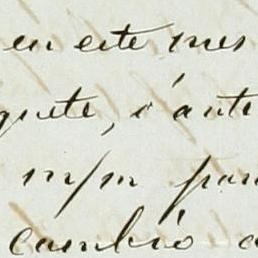 en este mes
quete, é ante
m/m para
cambió a